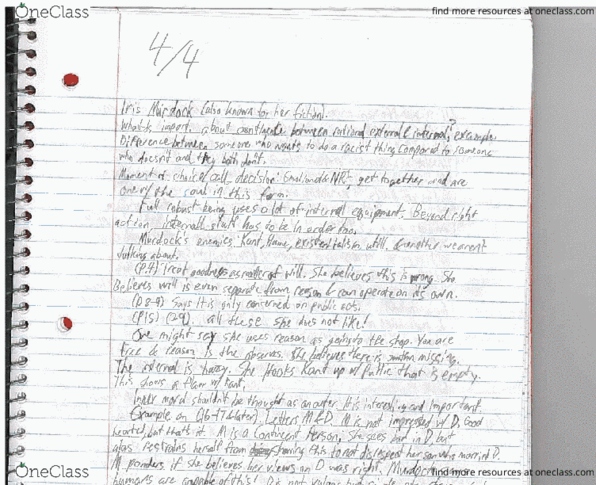 OneClass
find more resources at oneclass.com
4/4
Iris Murdock (also known for her fiction).
What's import. about between rational external & internal? example.
Difference between someone who wants to do a racist thing compared to someone
who doesn't and they both don't.
Moment of clinical call decision: & NR, get together and are
one of the soul in this form.
Full robust being uses a lot of internal equipment. Beyond right
action, internal stuff has to be in order too.
Murdock's enemies, Kant, Hume, existentialism, util, & another we aren't
talking about.
(P.4) treat goodness as matter of will. She believes this is wrong. She
Believes will is even separate from reason & can operate on its own.
(P.8-9) Says it is only concerned on public acts.
(P.15) (29). all these she does not like!
One might say she uses reason as going to the shop. You are
free & reason is the observer. She believes there is missing.
The internal is hazy. She Hooks Kant up w/ Public that is empty.
This shows a flaw w/ Kant.
Inner moral shouldn't be thought as an outer. It is interesting and important.
Example on (16-17 & later), Letters M & D. M is not impressed w/ D, Good
hearted, but that's it. M is a Continent Person. She sees but in D but
also restrains herself from showing this to not disrespect her son who married D.
M ponders if she believes her views on D was right. Murdock
humans are capable of this! D is not
OneClass
find more resources at oneclass.com